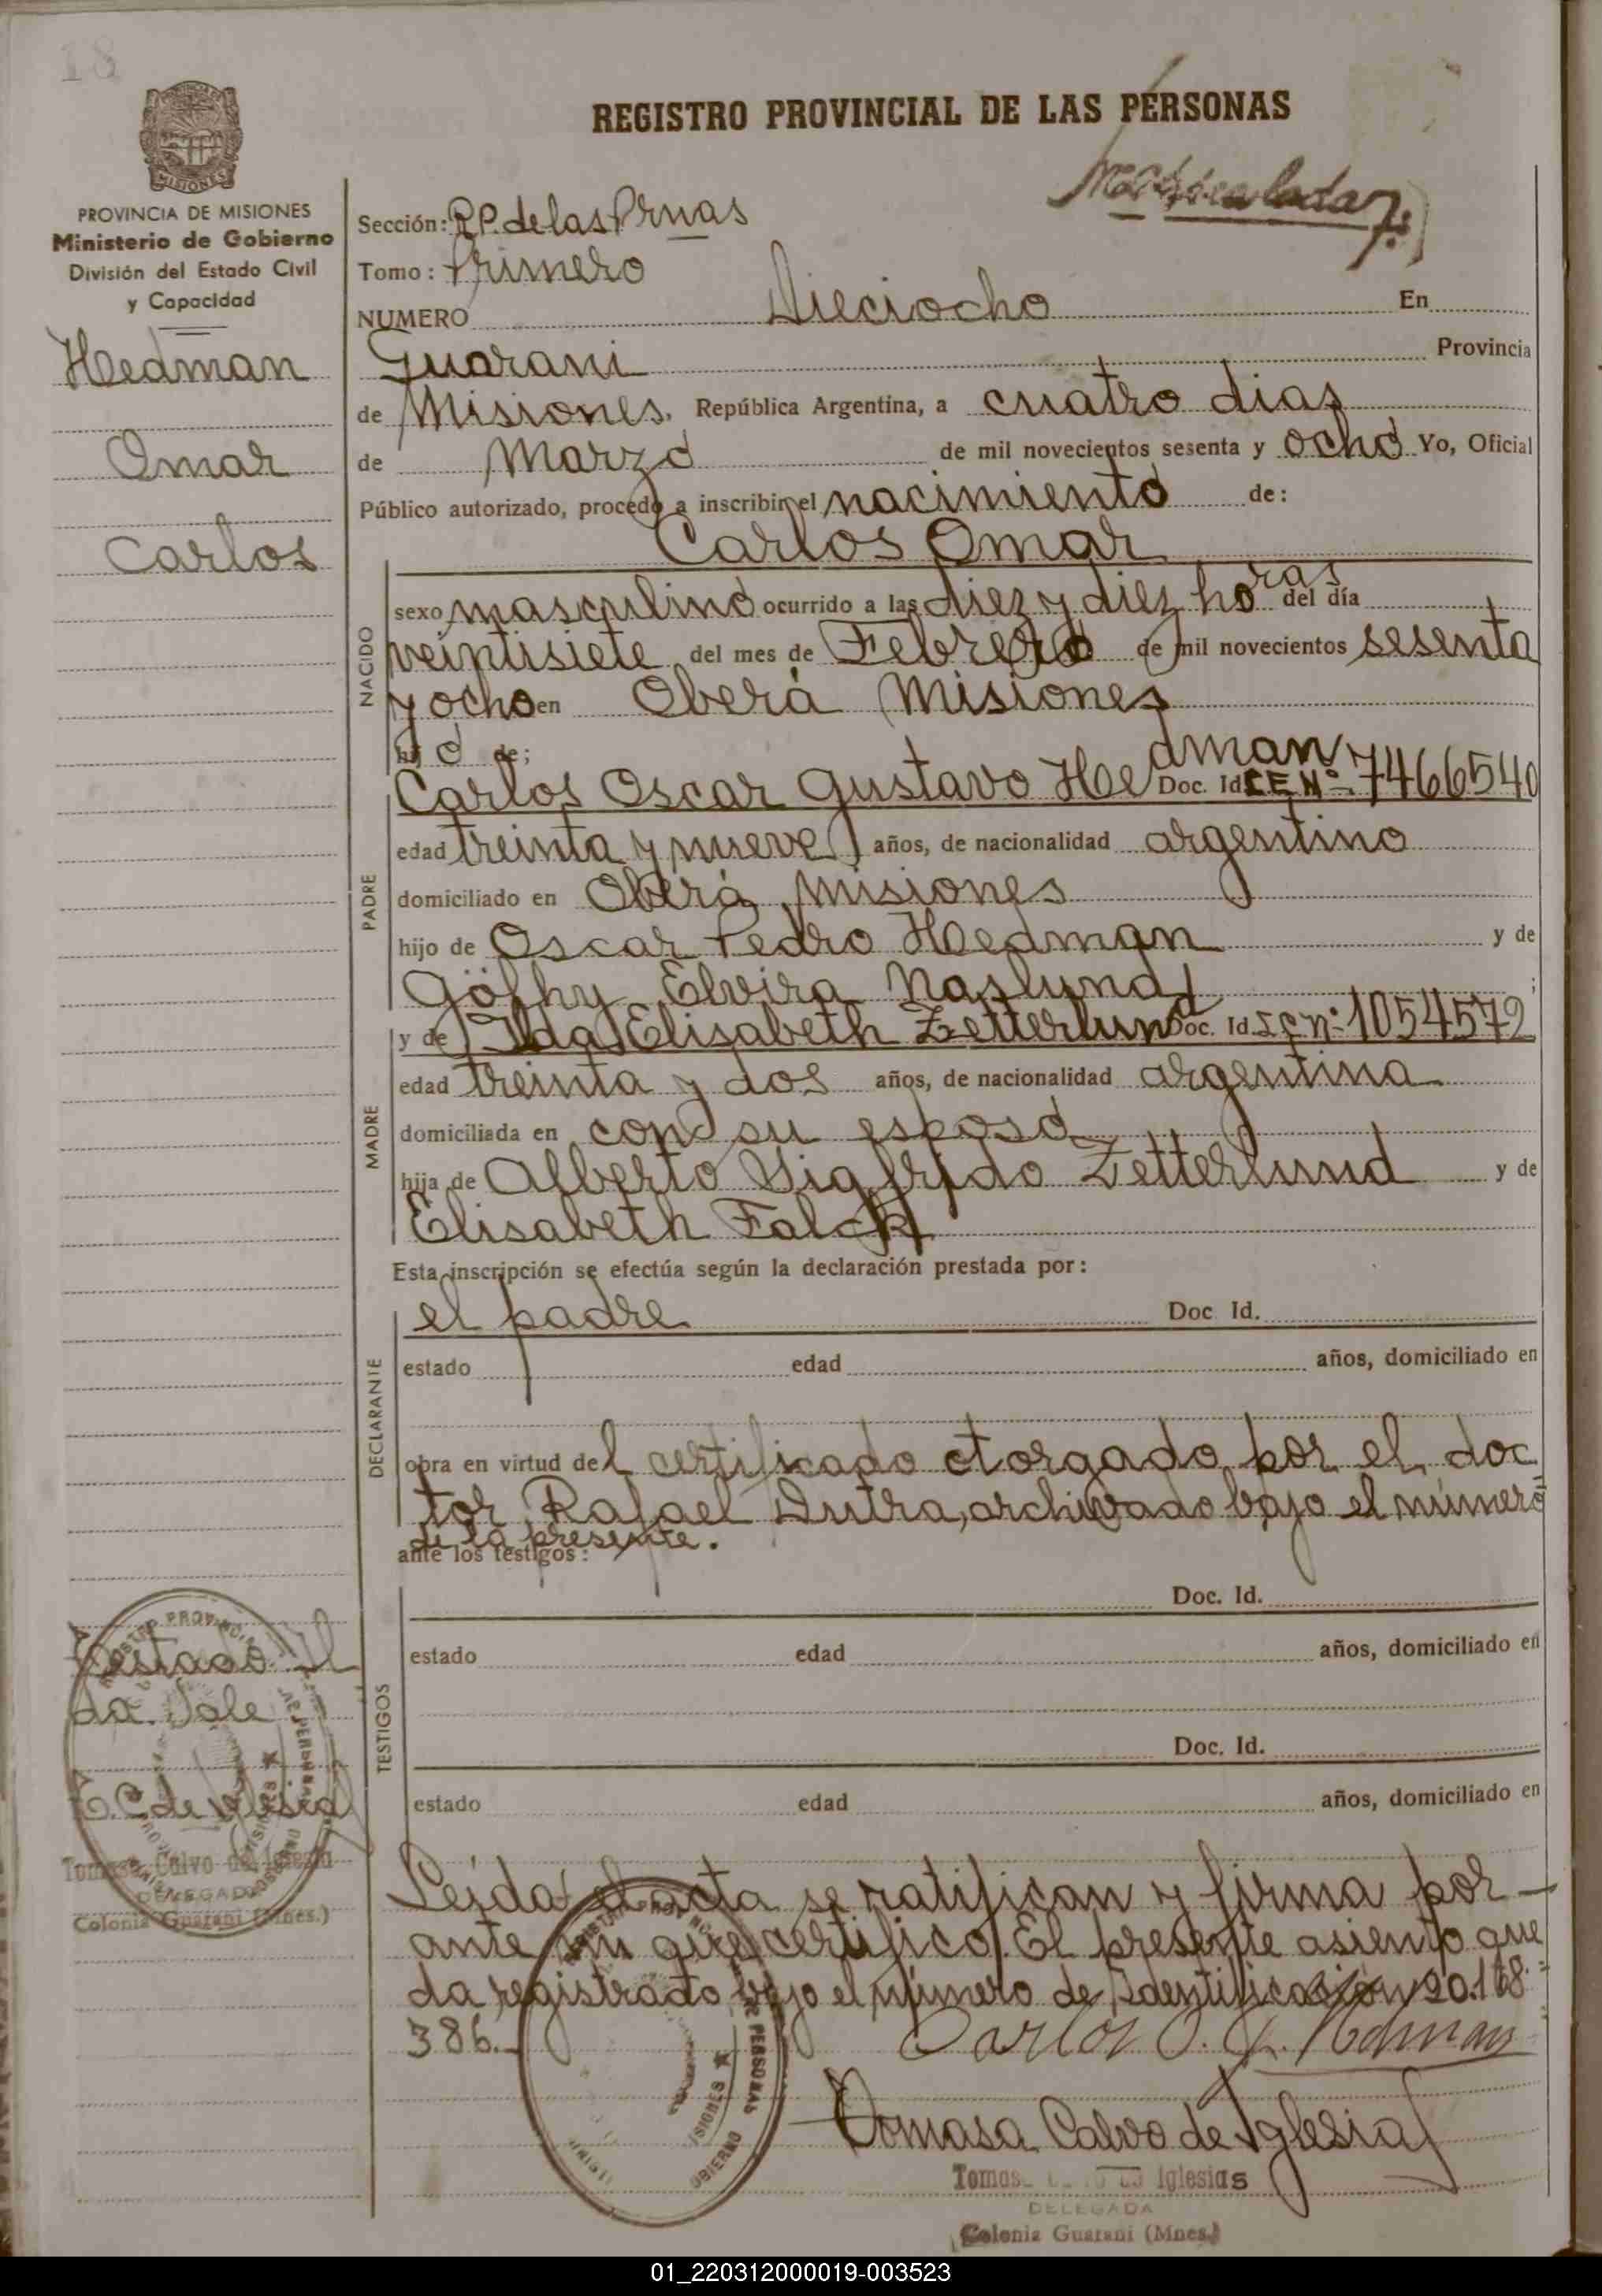 18
REGISTRO PROVINCIAL DE LAS PERSONAS
Matriculado
MISIONES
PROVINCIA DE MISIONES
Ministerio de Gobierno
División del Estado Civil
y Capacidad
Hedman
Omar
Carlos
Sección: R.P. de las Prnas
Tomo: Primero
NUMERO Dieciocho En
Guarani Provincia
de Misiones, República Argentina, a cuatro dias
de Marzo de mil novecientos sesenta y ocho Yo, Oficial
Público autorizado, procedo a inscribir el nacimiento de:
Carlos Omar
NACIDO
sexo masculino ocurrido a las diez y diez horas del día
veintisiete del mes de Febrero de mil novecientos sesenta
y ocho en Oberá Misiones
hijo de;
PADRE
Carlos Oscar Gustavo Hedman Doc. Id. L.E.Nº 7466540
edad treinta y nueve años, de nacionalidad argentino
domiciliado en Oberá, Misiones
hijo de Oscar Pedro Hedman y de
Naslund;
Elvira
MADRE
y de Ilda Elisabeth Zetterlund Doc. Id. L C nº 1054572
edad treinta y dos años, de nacionalidad argentina
domiciliada en con su esposo
hija de Alberto Sigfrido Zetterlund y de
Elisabeth Falck
Esta inscripción se efectúa según la declaración prestada por:
DECLARANTE
el padre Doc Id.
estado edad años, domiciliado en
obra en virtud del certificado otorgado por el doc
tor Rafael Dutra, archivado bajo el número
de la presente.
ante los testigos:
TESTIGOS
Doc. Id.
estado edad años, domiciliado en
Doc. Id.
estado edad años, domiciliado en
Testado Il
da. Vale
T. C. de Iglesia
Tomasa Calvo de Iglesia
DELEGADA
Colonia Guarani (Mnes.)
Leida el acta se ratifican y firma por
ante mi que certifico. El presente asiento que
da registrado bajo el número de Identificación 20.168.
386.
Carlos O. G. Hedman
Tomasa Calvo de Iglesia
Iglesias
DELEGADA
Colonia Guarani (Mnes.)
01_220312000019-003523